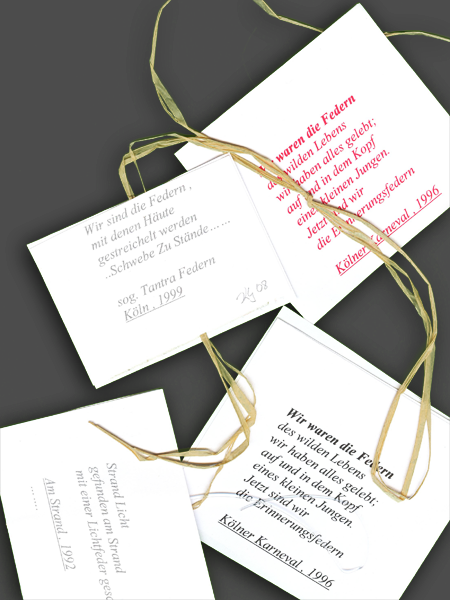 Wir waren die Federn
des wilden Lebens
wir haben alles gelebt;
auf und in dem Kopf
eines kleinen Jungen.
Jetzt sind wir
die Erinnerungsfedern
Kölner Karneval , 1996
Wir sind die Federn ,
mit denen Häute
gestreichelt werden
..Schwebe Zu Stände……
sog. Tantra Federn
Köln , 1999
08
Wir waren die Federn
des wilden Lebens
wir haben alles gelebt;
auf und in dem Kopf
eines kleinen Jungen.
Jetzt sind wir
die Erinnerungsfedern
Kölner Karneval , 1996
Strand Licht
gefunden am Strand
mit einer Lichtfeder
Am Strand , 1992
……